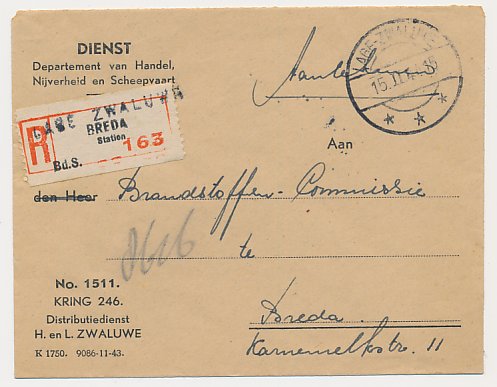 DIENST
Departement van Handel,
Nijverheid en Scheepvaart
LAGE-ZWALUWE
15.II.
R
LAGE ZWALUWE
BREDA
Station
163
Bd.S.
Aan
den Heer Brandstoffen-Commissie
8616
te
Breda
Karnemelkstr. 11
No. 1511.
KRING 246.
Distributiedienst
H. en L. ZWALUWE
K 1750. 9086-11-43.